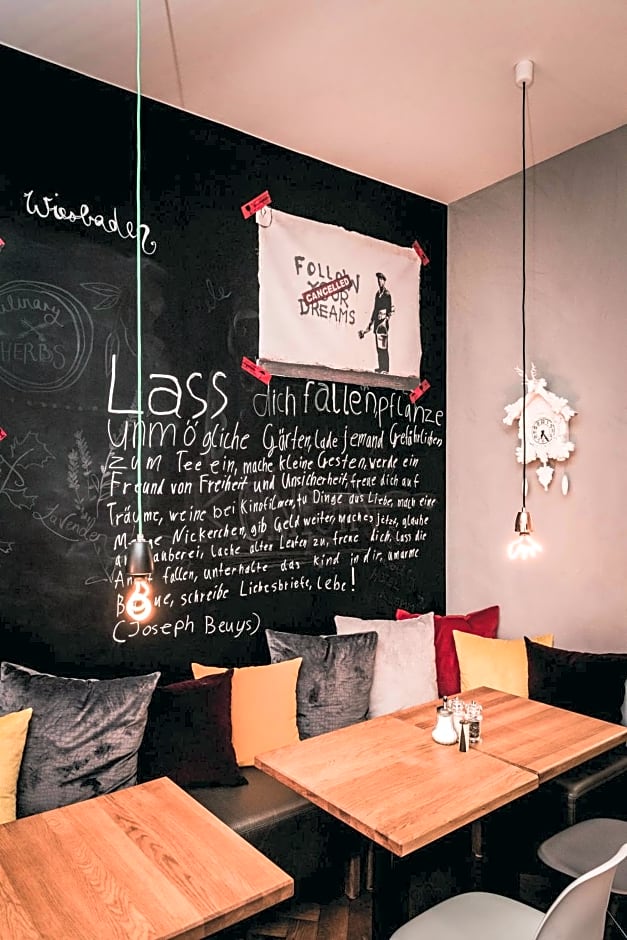 Wiesbaden
FOLLOW
YOUR
CANCELLED
DREAMS
HERBS
Lass dich fallen, pflanze
unmögliche Gärten, lade jemand Gefährlichen
zum Tee ein, mache kleine Gesten, werde ein
Freund von Freiheit und Unsicherheit, freue dich auf
Träume, weine bei Kinofilmen, tu Dinge aus Liebe, mach eine
Menge Nickerchen, gib Geld weiter, mach es jetzt, glaube
an Zauberei, lache alten Leuten zu, freue dich, lass die
Angst fallen, unterhalte das kind in dir, umarme
Bäume, schreibe Liebesbriefe, lebe!
(Joseph Beuys)
Lavender